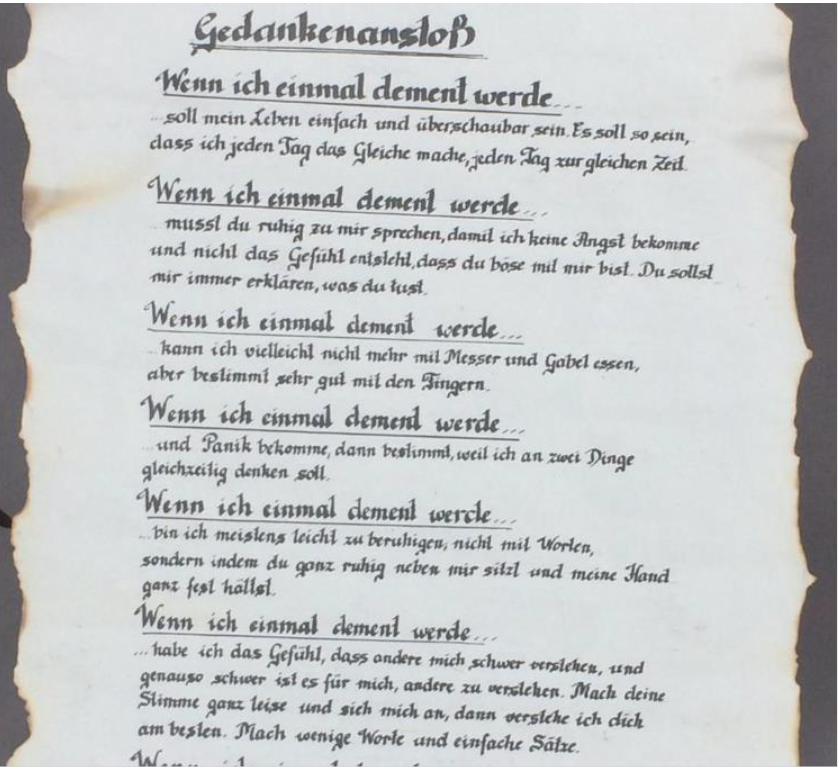 Gedankenanstoß
Wenn ich einmal dement werde...
...soll mein Leben einfach und überschaubar sein. Es soll so sein,
dass ich jeden Tag das Gleiche mache, jeden Tag zur gleichen Zeit.
Wenn ich einmal dement werde...
...musst du ruhig zu mir sprechen, damit ich keine Angst bekomme
und nicht das Gefühl entsteht, dass du böse mit mir bist. Du sollst
mir immer erklären, was du tust.
Wenn ich einmal dement werde...
...kann ich vielleicht nicht mehr mit Messer und Gabel essen,
aber bestimmt sehr gut mit den Fingern.
Wenn ich einmal dement werde...
...und Panik bekomme, dann bestimmt, weil ich an zwei Dinge
gleichzeitig denken soll.
Wenn ich einmal dement werde...
...bin ich meistens leicht zu beruhigen; nicht mit Worten,
sondern indem du ganz ruhig neben mir sitzt und meine Hand
ganz fest hältst.
Wenn ich einmal dement werde...
...habe ich das Gefühl, dass andere mich schwer verstehen, und
genauso schwer ist es für mich, andere zu verstehen. Mach deine
Stimme ganz leise und sieh mich an, dann verstehe ich dich
am besten. Mach wenige Worte und einfache Sätze.
Wenn ich einmal dement